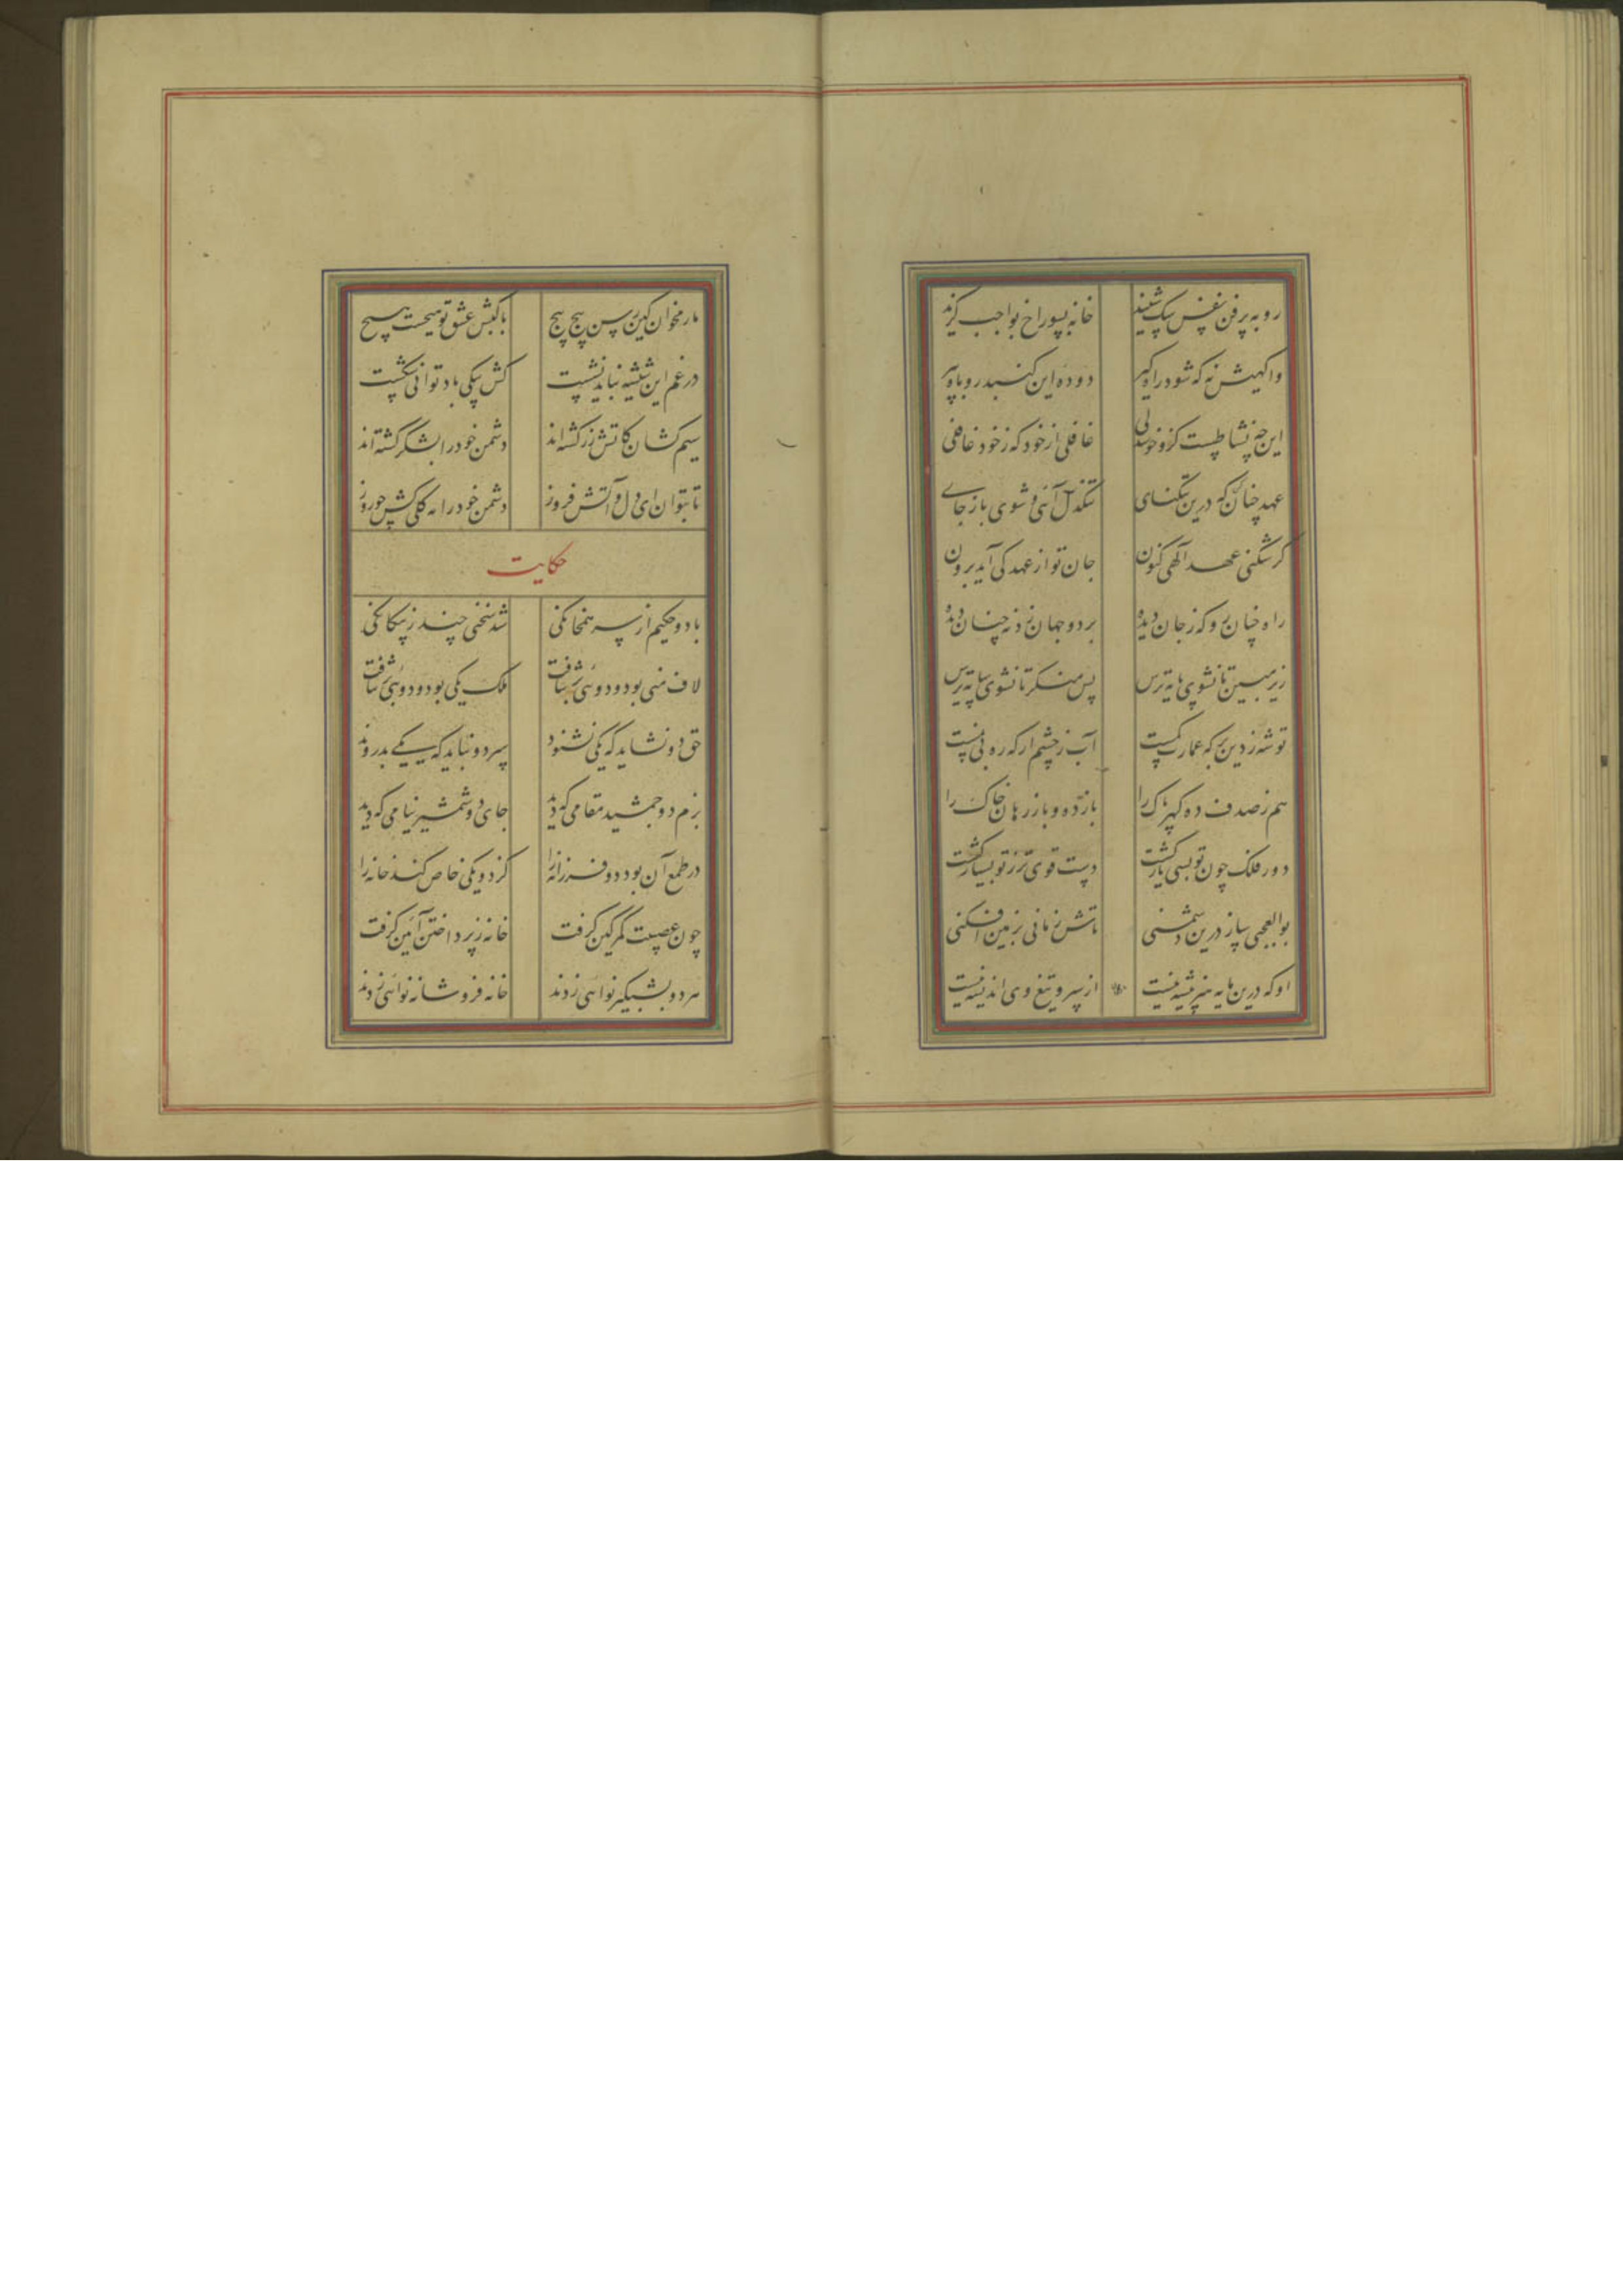 روبه پرفن نفس سگ شنید خانه بسوراخ بواجب گزید
واگهیش نه که شود راه گیر دوده این گنبد روباه پیر
این چه نشاطست کزو خوشدلی غافلی از خود که ز خود غافلی
عهد چنان کن که درین تنگنای تنگدل آئی و شوی باز جای
گر شکنی عهد آلهی کنون جان تو از عهد کی آید برون
راه چنان رو که ز جان دیده بر دو جهان زن نه چنان دیده
زیر مبین تا نشوی پایه ترس پس منگر تا نشوی سایه ترس
توشه ز دین بر که عمارت کمست آب ز چشم آر که ره بی نمست
هم ز صدف ده گهر پاک را بازده و بازرهان خاک را
دور فلک چون تو بسی یار کشت دست قوی تر ز تو بسیار کشت
بوالعجبی ساز درین دشمنی تاش زمانی بزمین افکنی
او که درین پایه هنر پیشه نیست از سپر و تیغ وی اندیشه نیست
مار مخوان کین رسن پیچ پیچ با کشش عشق تو هیچست هیچ
در غم این شیشه نباید نشست کش بیکی باد توانی شکست
سیم کشان کاتش زر کشته اند دشمن خود را بشکر کشته اند
تا بتوان ای دل و آتش فروز دشمن خود را به گلی کش چو روز
حکایت
با دو حکیم از سر همخانگی شد سخنی چند ز بیگانگی
لاف منی بود و دوئی بر نتافت ملک یکی بود و دوئی بر نتافت
حق دو نشاید که یکی بشنود سر دو نباید که یکی بدرود
بزم دو جمشید مقامی که دید جای دو شمشیر نیامی که دید
در طمع آن بود دو فرزانه را کز دو یکی خاص کند خانه را
چون عصبیت کمر کین گرفت خانه ز پرداختن آئین گرفت
هر دو بشبگیر نوائی زدند خانه فروشانه نوائی زدند